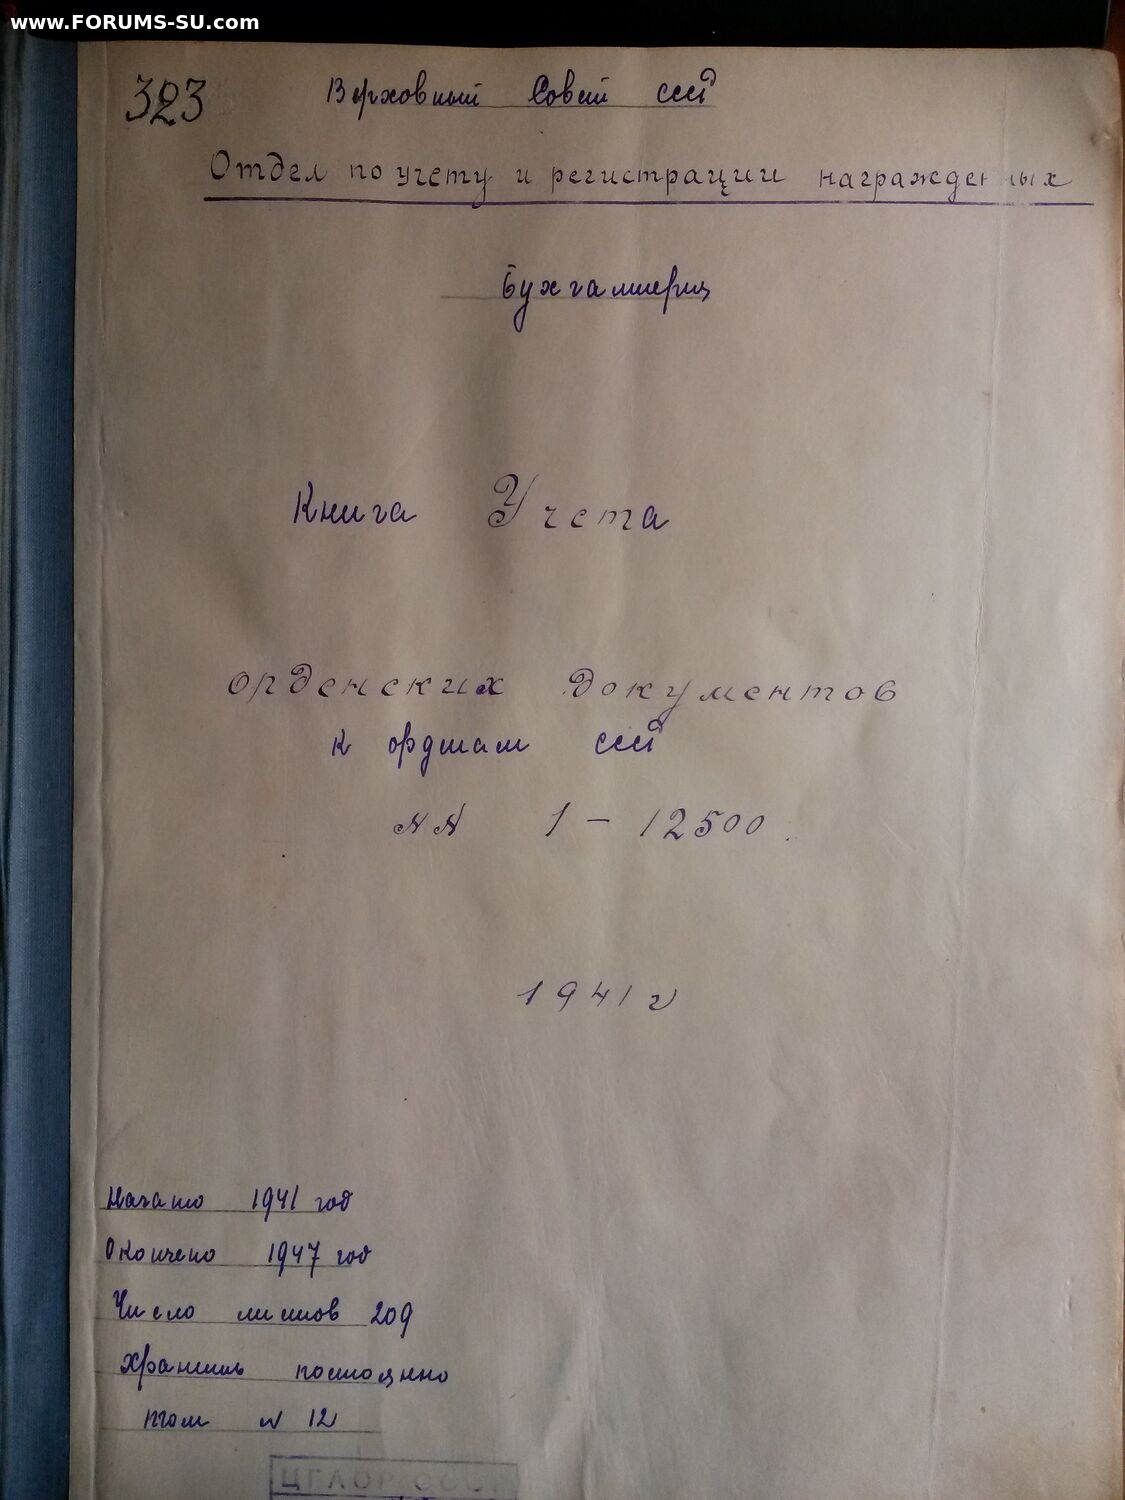 www.FORUMS-SU.com
323
Верховный Совет СССР
Отдел по учету и регистрации награжденных
Бухгалтерия
Книга Учета
орденских документов
к орденам СССР
№№ 1 – 12500.
1941 г
Начато 1941 год
Окончено 1947 год
Число листов 209
хранить постоянно
том № 12
ЦГАОР СССР